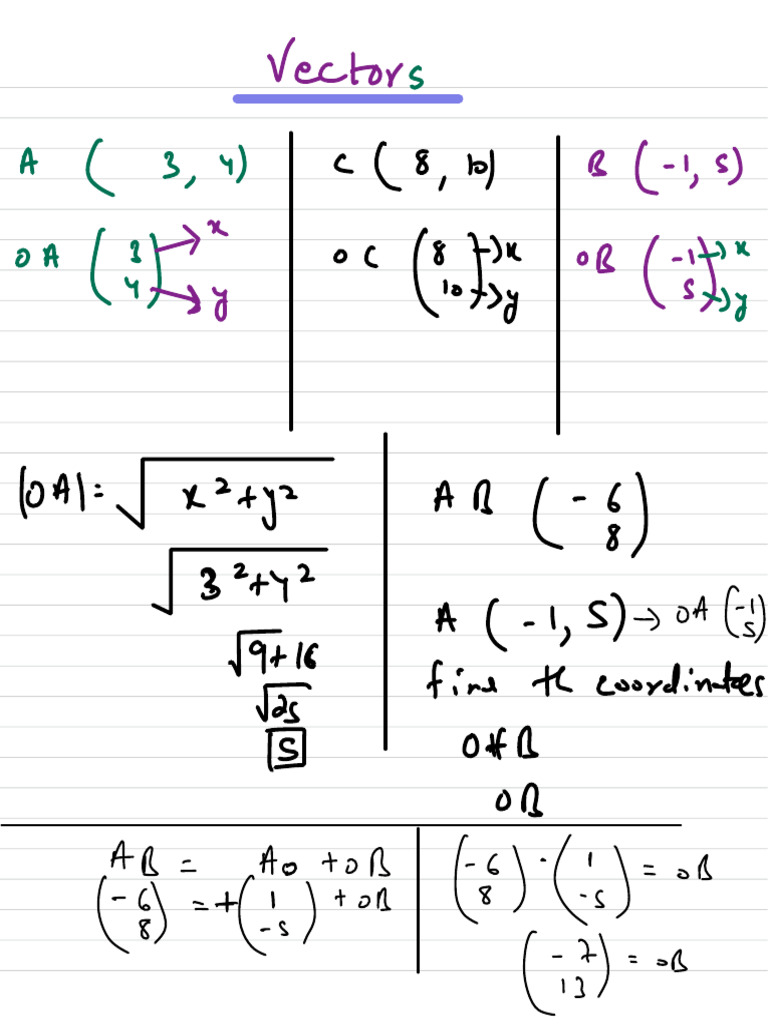 Vectors
A ( 3, 4)
OA ( 3 → x
4 ) → y
C ( 8, 10)
OC ( 8 → x
10 ) → y
B (-1, 5)
OB ( -1 → x
5 ) → y
|OA| = √x²+y²
√3²+4²
√9+16
√25
5
AB ( -6
8 )
A (-1, 5) → OA (-1
5)
find the coordinates
of B
OB
AB = AO + OB
(-6
8) = + (1
-5) + OB
(-6
8) - (1
-5) = OB
(-7
13) = OB